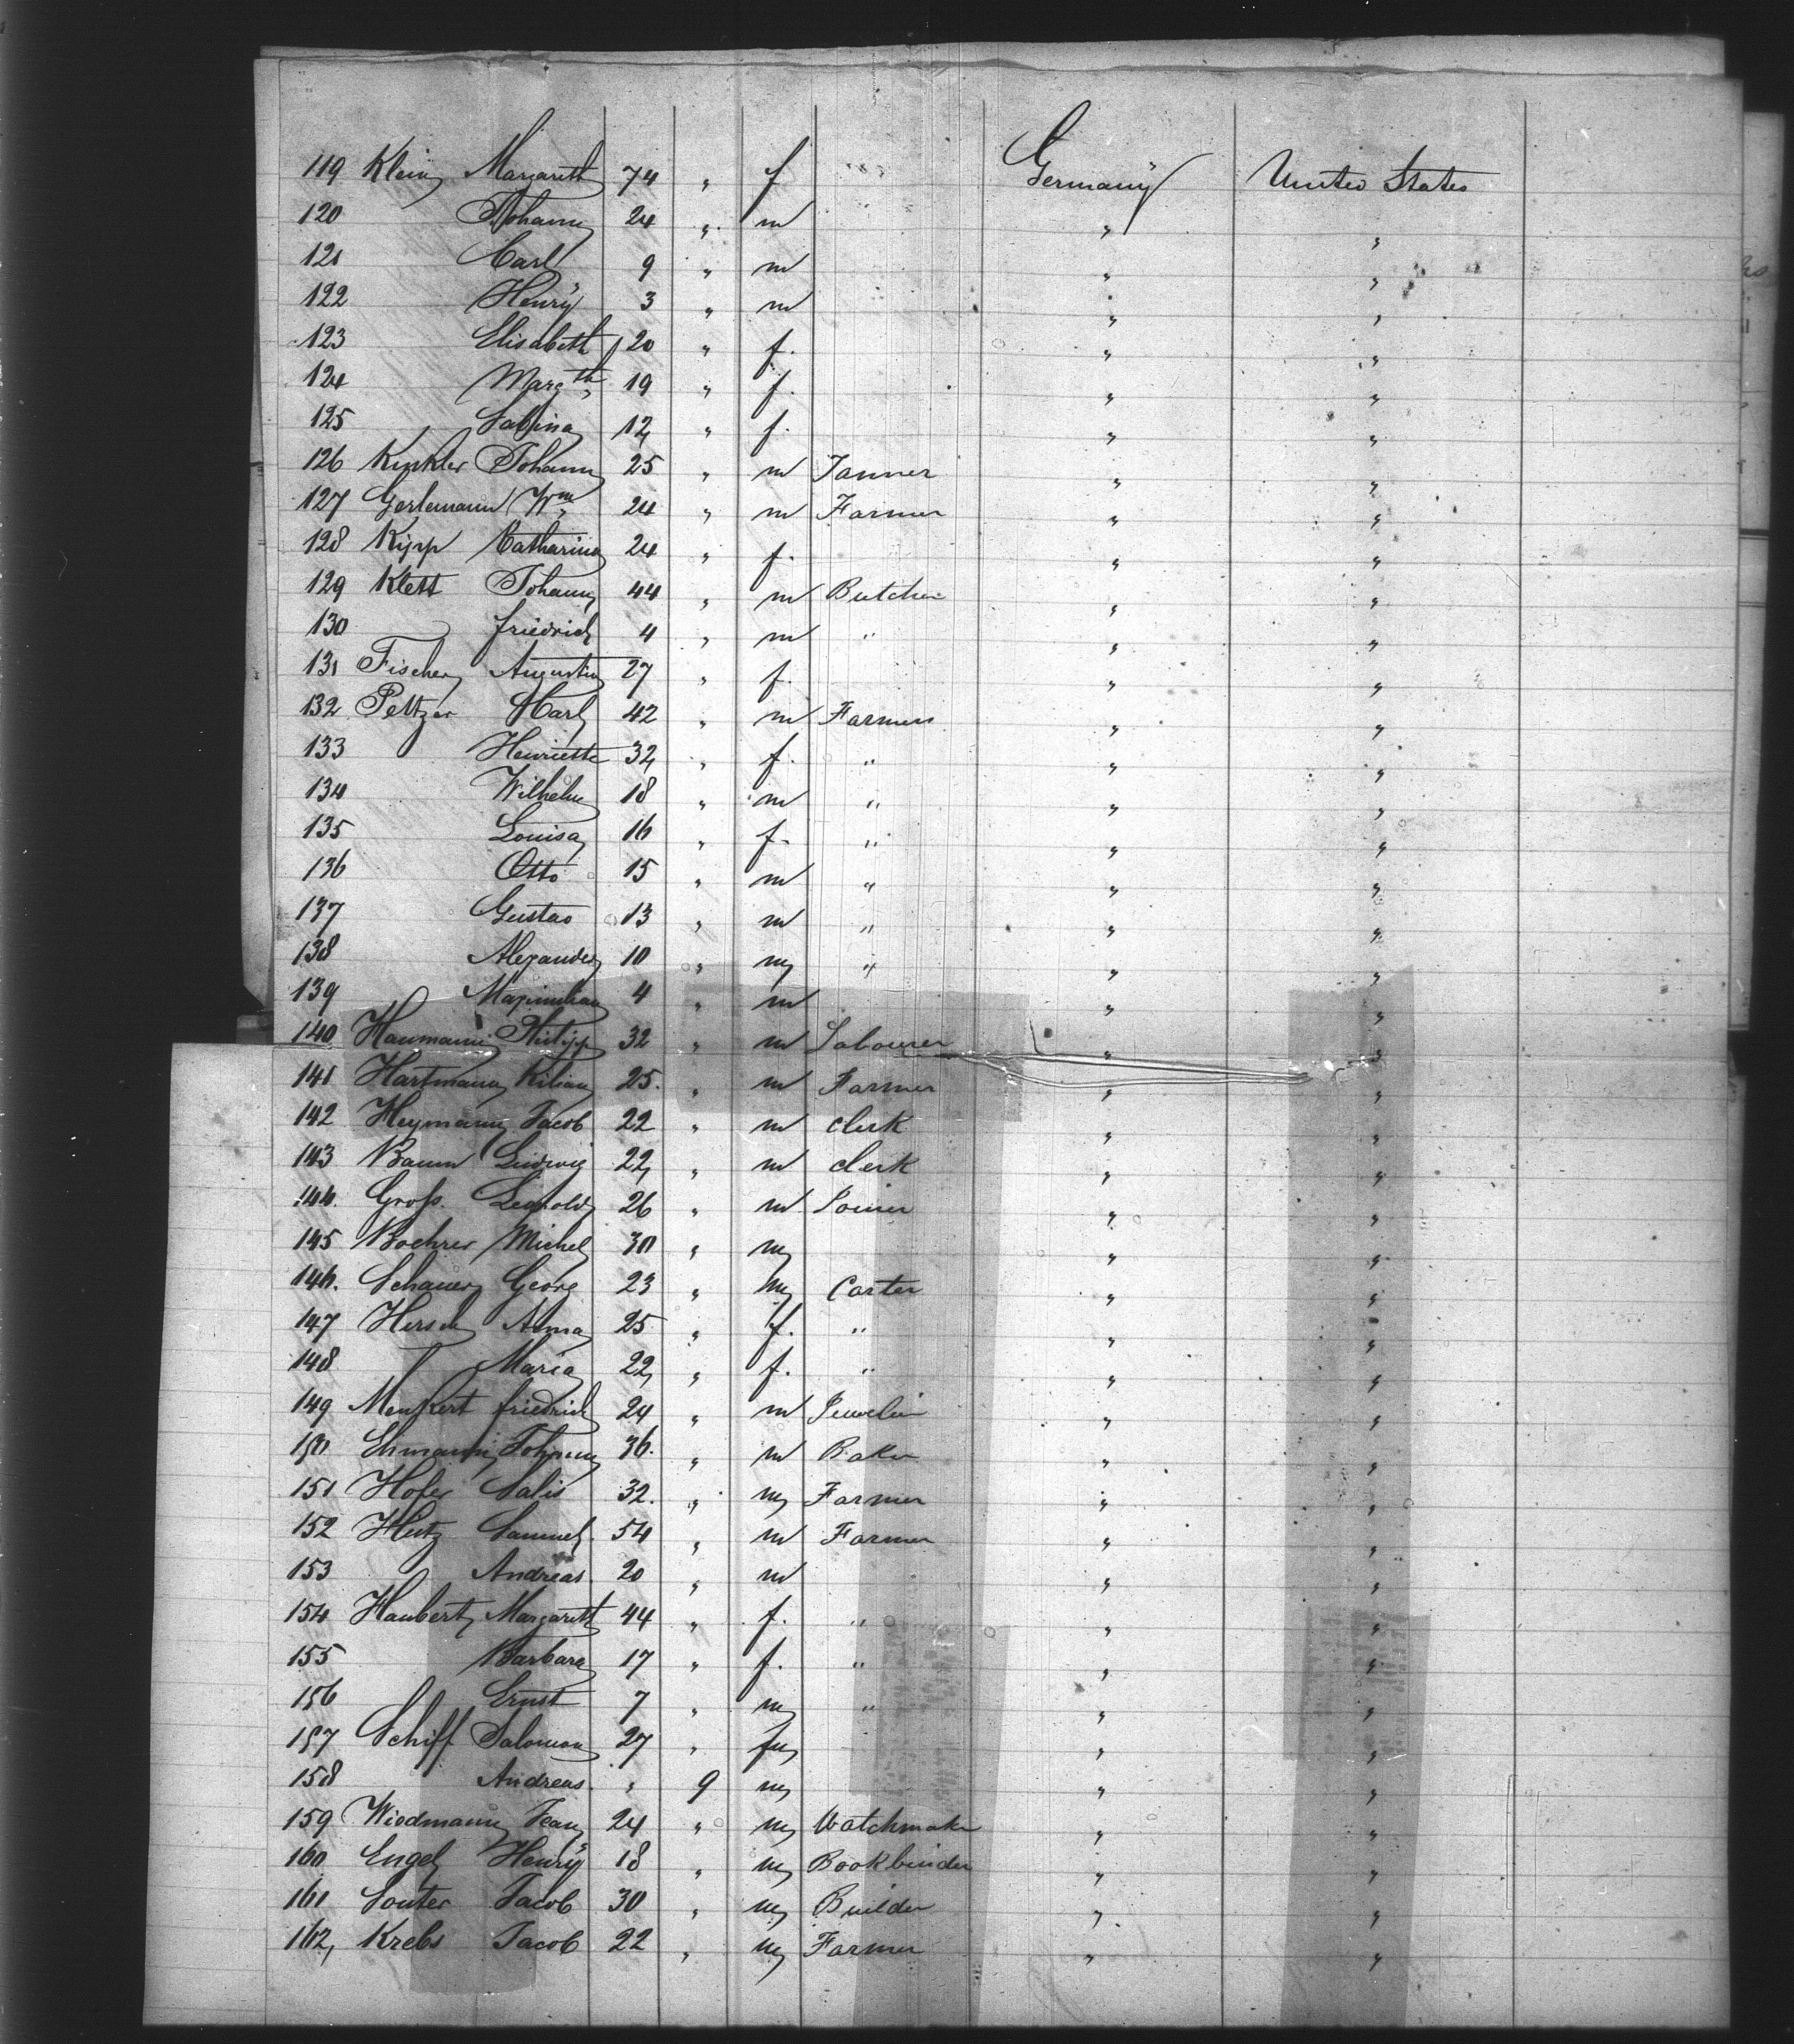 119 Klein Margareth 74 " f Germany United States
120 Johann 24 " m " "
121 Carl 9 " m " "
122 Henry 3 " m " "
123 Elisabeth 20 " f. " "
124 Margth 19 " f. " "
125 Sabina 12 " f. " "
126 Kinkler Johann 25 " m Tanner " "
127 Gerlemann Wm 24 " m Farmer " "
128 Kipp Catharina 24 " f. " "
129 Klett Johann 44 " m Butcher " "
130 Friedrich 4 " m " " "
131 Fischer Augustin 27 " f. " "
132 Peltzer Karl 42 " m Farmers " "
133 Henriette 32 " f. " " "
134 Wilhelm 18 " m " " "
135 Louisa 16 " f. " " "
136 Otto 15 " m " " "
137 Gustav 13 " m " " "
138 Alexander 10 " m " " "
139 Maximilian 4 " m " "
140 Haumann Philipp 32 " m Labourer " "
141 Hartmann Kilian 25. " m Farmer " "
142 Heymann Jacob 22 " m Clerk " "
143 Baum Ludwig 22 " m clerk " "
144. Groß. Leopold 26 " m Joiner " "
145 Boehrer Michel 30 " m " "
146. Schauer Georg 23 " m Carter " "
147 Hirsch Anna 25 " f. " " "
148 Maria 22 " f. " " "
149 Menkert Friedrich 24 " m Jewelier " "
150 Ehmann Johann 36. " m Baker " "
151 Hofer Salis 32. " m Farmer " "
152 Hutz Samuel. 54 " m Farmer " "
153 Andreas. 20 " m " "
154 Haubert Margareth 44 " f. " " "
155 Barbara 17 " f. " " "
156 Ernst 7 " m " " "
157 Schiff Salomon 27 " " "
158 Andreas. " 9 m " "
159 Wiedmann Jean 24 " m Watchmaker " "
160 Engel Henry 18 " m Bookbinder " "
161 Souter Jacob 30 " m Builder " "
162, Krebs Jacob 22 " m Farmer " "